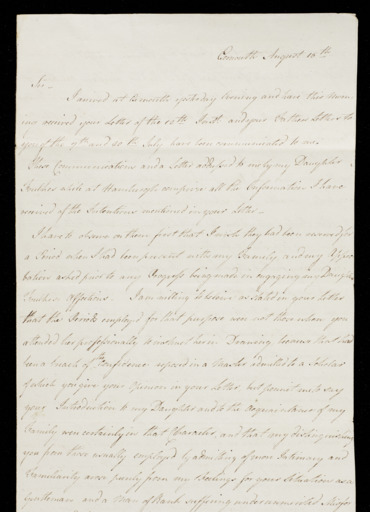 Exmouth August 16th
Sir –
I arrived at Exmouth yesterday Evening and have this morn
ing received your Letter of the 10th Inst. and your Mothers Letters to
you of the 7th and 20th July have been communicated to me.
These Communications and a Letter addressed to me by my Daughter
while at comprise all the Information I have
received of the Intentions mentioned in your Letter –
I have to observe on them first that I wish they had been reserved for
a Period when I had been present with my Family and my Appro
bation asked prior to any Progress being made in engaging my Daughter
Affections. I am willing to believe as stated in your Letter
that the Period employed for that purpose was not those when you
attended her professionally to instruct her in Drawing because that would have
been a breach of the Confidence reposed in a Master admitted to a Scholar
of which you give your Opinion in your Letter but permit me to say
your Introduction to my Daughter and to the Acquaintance of my
Family was certainly in that Character, and that my distinguishing
you from those usually employed by admitting of more Intimacy and
Familiarity arose purely from my Feelings for your Situation as a
Gentleman and a Man of Rank suffering under unmerited